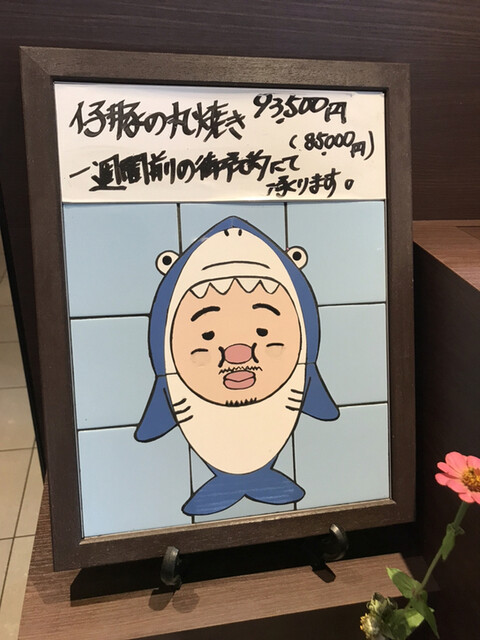 仔豚の丸焼き 93,500円
(85,000円)
一週間前の御予約にて
承ります。